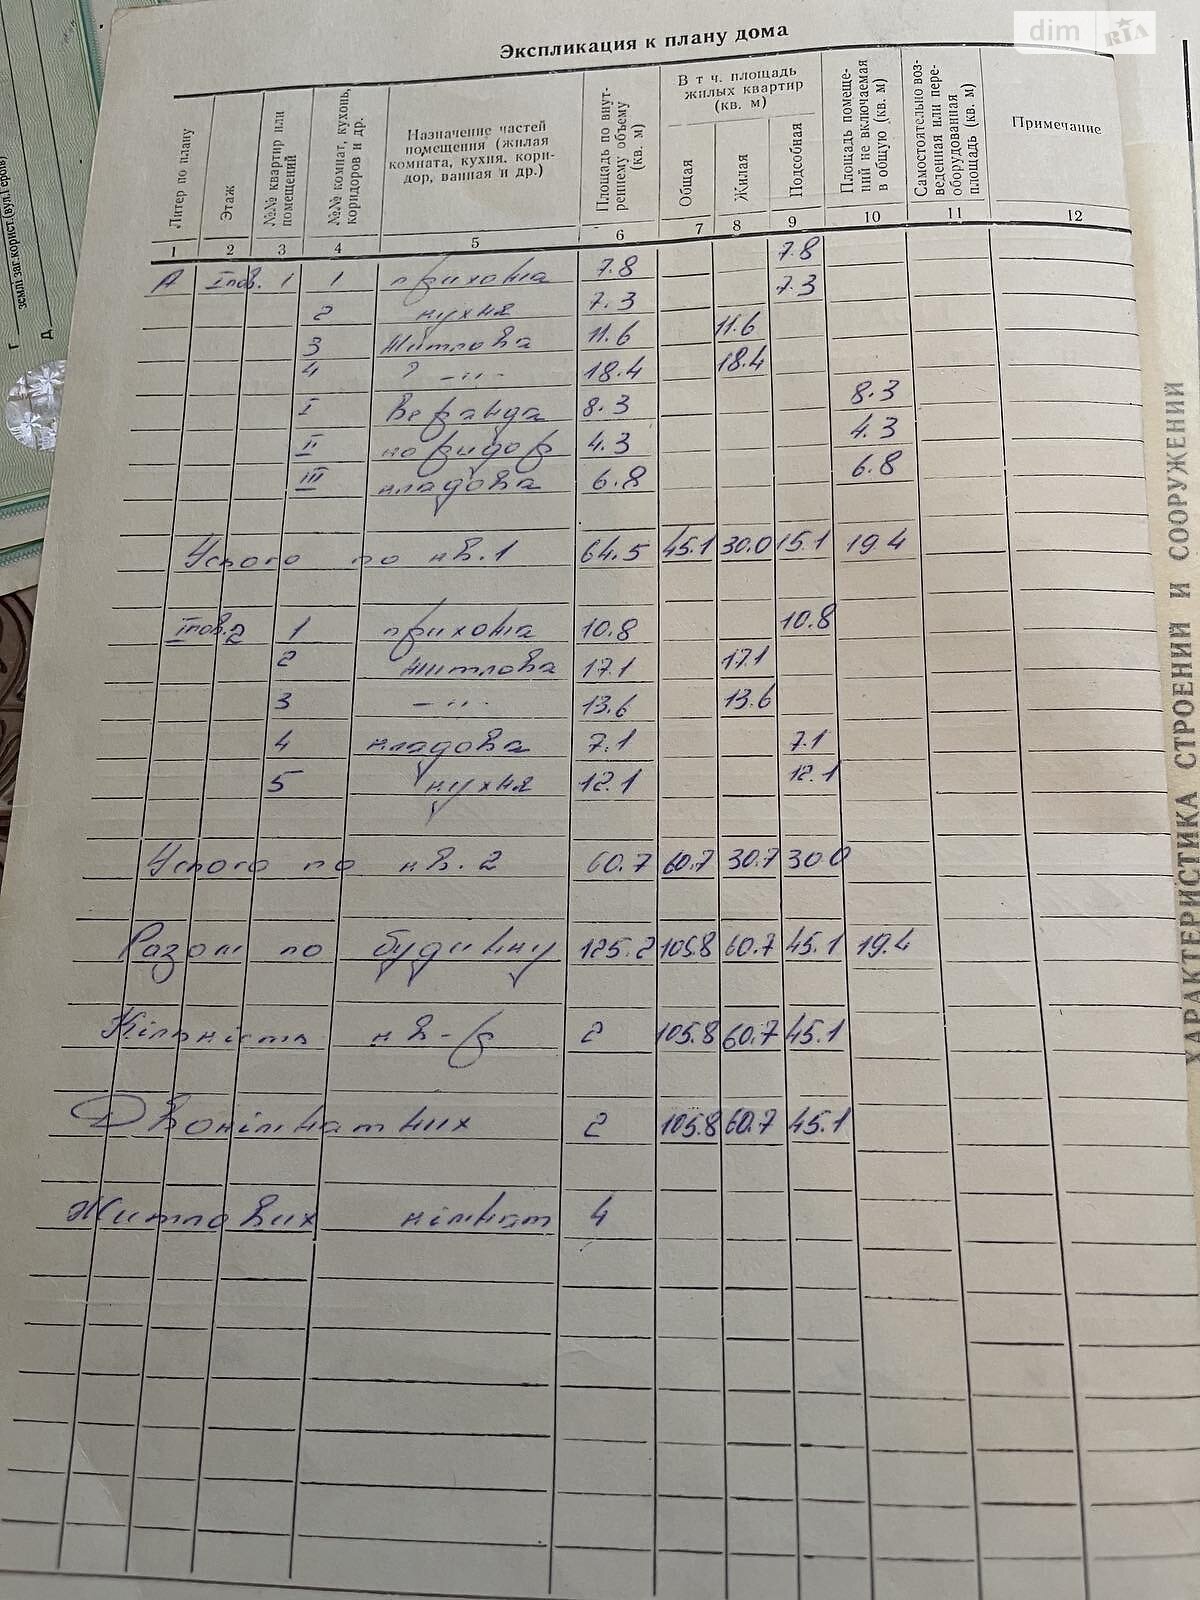 dim RIA
Экспликация к плану дома
Литер по плану
Этаж
№№ квартир или помещений
№№ комнат, кухонь, коридоров и др.
Назначение частей помещения (жилая комната, кухня, коридор, ванная и др.)
Площадь по внутреннему объему (кв. м)
В т ч. площадь жилых квартир (кв. м)
Общая
Жилая
Подсобная
Площадь помещений не включаемая в общую (кв. м)
Самостоятельно возведенная или переоборудованная площадь (кв. м)
Примечание
1 2 3 4 5 6 7 8 9 10 11 12
А I пов. 1 1 прихожа 7.8 7.8
2 кухня 7.3 7.3
3 житлова 11.6 11.6
4 -„- 18.4 18.4
I веранда 8.3 8.3
II коридор 4.3 4.3
III кладова 6.8 6.8
Усього по кв. 1 64.5 45.1 30.0 15.1 19.4
I пов. 2 1 прихожа 10.8 10.8
2 житлова 17.1 17.1
3 -„- 13.6 13.6
4 кладова 7.1 7.1
5 кухня 12.1 12.1
Усього по кв. 2 60.7 60.7 30.7 30.0
Разом по будинку 125.2 105.8 60.7 45.1 19.4
Кількість кв-р 2 105.8 60.7 45.1
Двокімнатних 2 105.8 60.7 45.1
Житлових кімнат 4
ХАРАКТЕРИСТИКА СТРОЕНИЙ И СООРУЖЕНИЙ
землі заг.корист.(вул.Героїв)